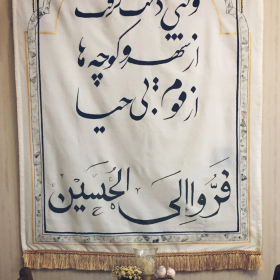 وقتی دلت گرفت
از شهر و کوچه ها
از قوم بی حیا
فَرّوا اِلَی الحُسین